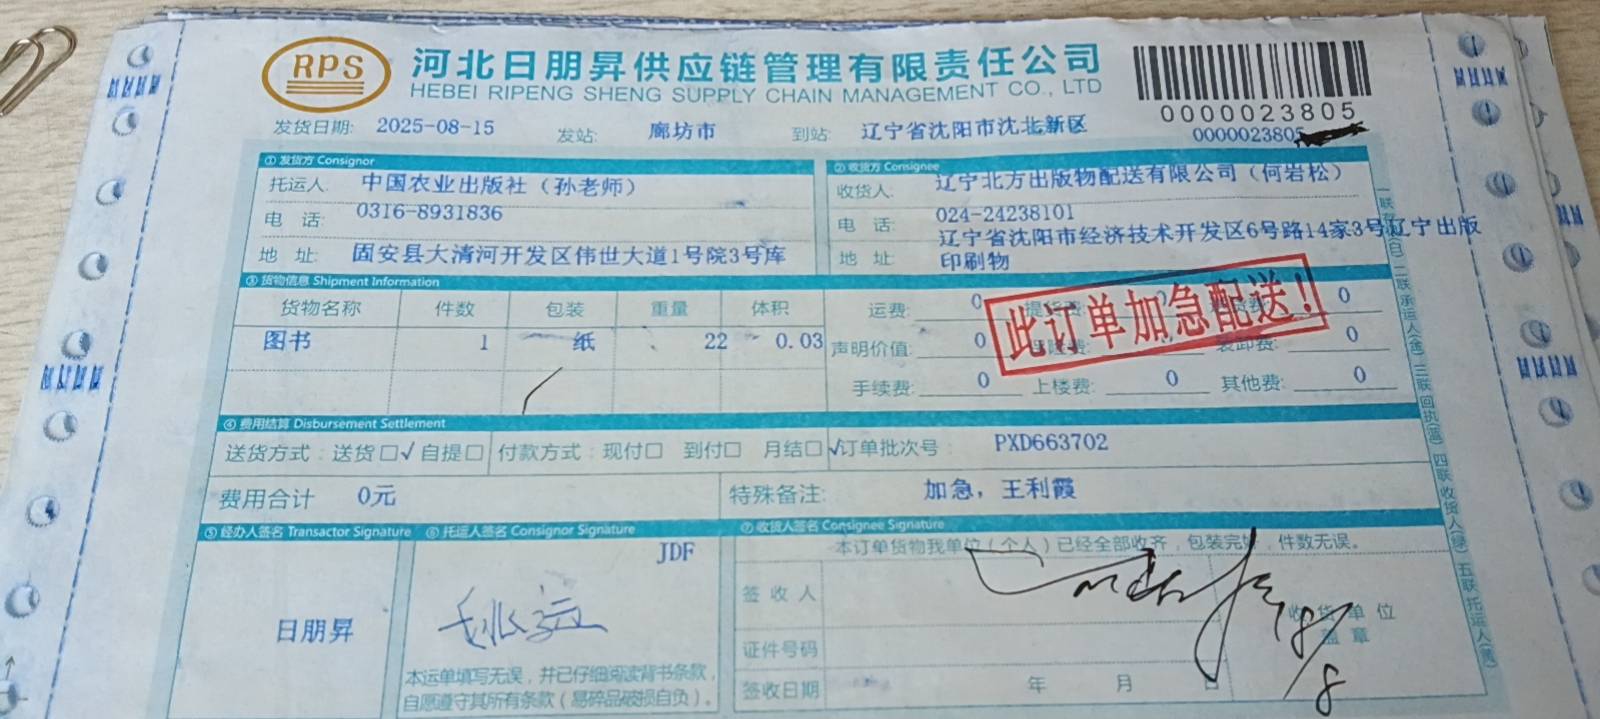 RPS
河北日朋昇供应链管理有限责任公司
HEBEI RIPENG SHENG SUPPLY CHAIN MANAGEMENT CO., LTD
0000023805
发货日期: 2025-08-15 发站: 廊坊市 到站: 辽宁省沈阳市沈北新区 0000023805
① 发货方 Consignor ② 收货方 Consignee
托运人: 中国农业出版社（孙老师） 收货人: 辽宁北方出版物配送有限公司（何岩松）
电 话: 0316-8931836 电 话: 024-24238101
地 址: 固安县大清河开发区伟世大道1号院3号库 地 址: 辽宁省沈阳市经济技术开发区6号路14家3号辽宁出版
印刷物
③ 货物信息 Shipment Information
货物名称 件数 包装 重量 体积 运费: 0 提货费: 0
图书 1 纸 22 0.03 声明价值: 0 保险费: 装卸费: 0
此订单加急配送！
手续费: 0 上楼费: 0 其他费: 0
④ 费用结算 Disbursement Settlement
送货方式：送货□√ 自提□ 付款方式：现付□ 到付□ 月结□√ 订单批次号: PXD663702
费用合计 0元 特殊备注: 加急，王利霞
⑤ 经办人签名 Transactor Signature ⑥ 托运人签名 Consignor Signature ⑦ 收货人签名 Consignee Signature
JDF 本订单货物我单位（个人）已经全部收齐，包装完好，件数无误。
签收人
日朋昇 收货单位
盖章
证件号码
本运单填写无误，并已仔细阅读背书条款，
自愿遵守其所有条款（易碎品破损自负）。
签收日期 年 月 日
18/8
一联存 (白) 二联承运人(金) 三联回执(蓝) 四联收货人(绿) 五联托运人(黄)